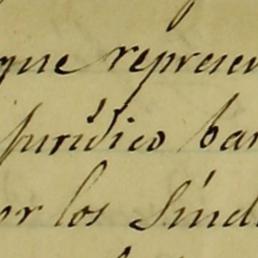 que represen
jurídico ban
or los Síndi